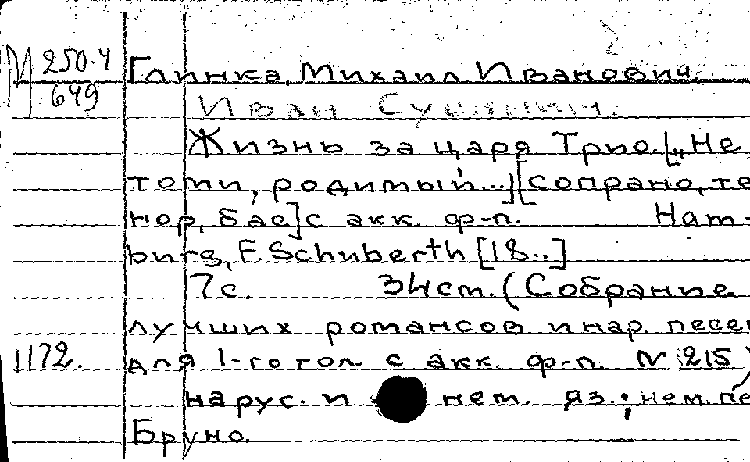 М 250.4
649
Глинка, Михаил Иванович.
Иван Сусанин.
Жизнь за царя Трио. [„Не
томи, родимый..] [сопрано, те
нор, бас] с акк. ф-п. Ham-
burg, F. Schuberth [18..]
7с. 34см. (Собрание
лучших романсов и нар. песен
1172. для 1-го гол с акк. ф-п. N 215)
на рус. и нем. яз.; нем. пе
Бруно.